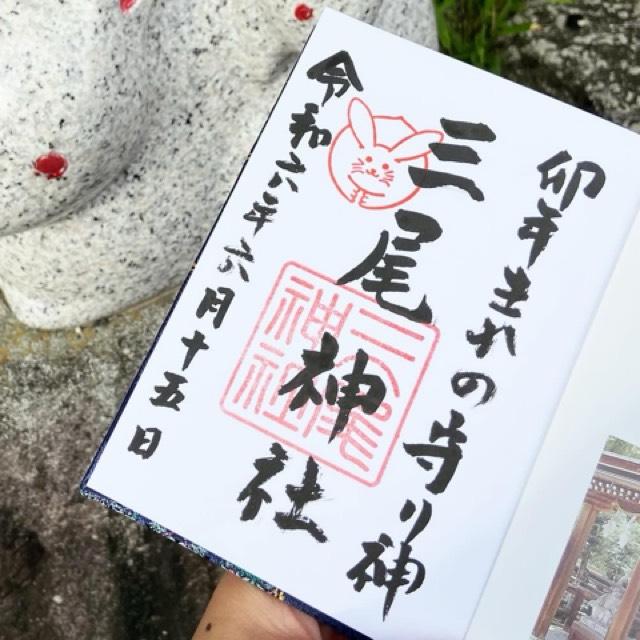 卯年生まれの守り神
三尾神社
三尾神社
令和六年六月十五日